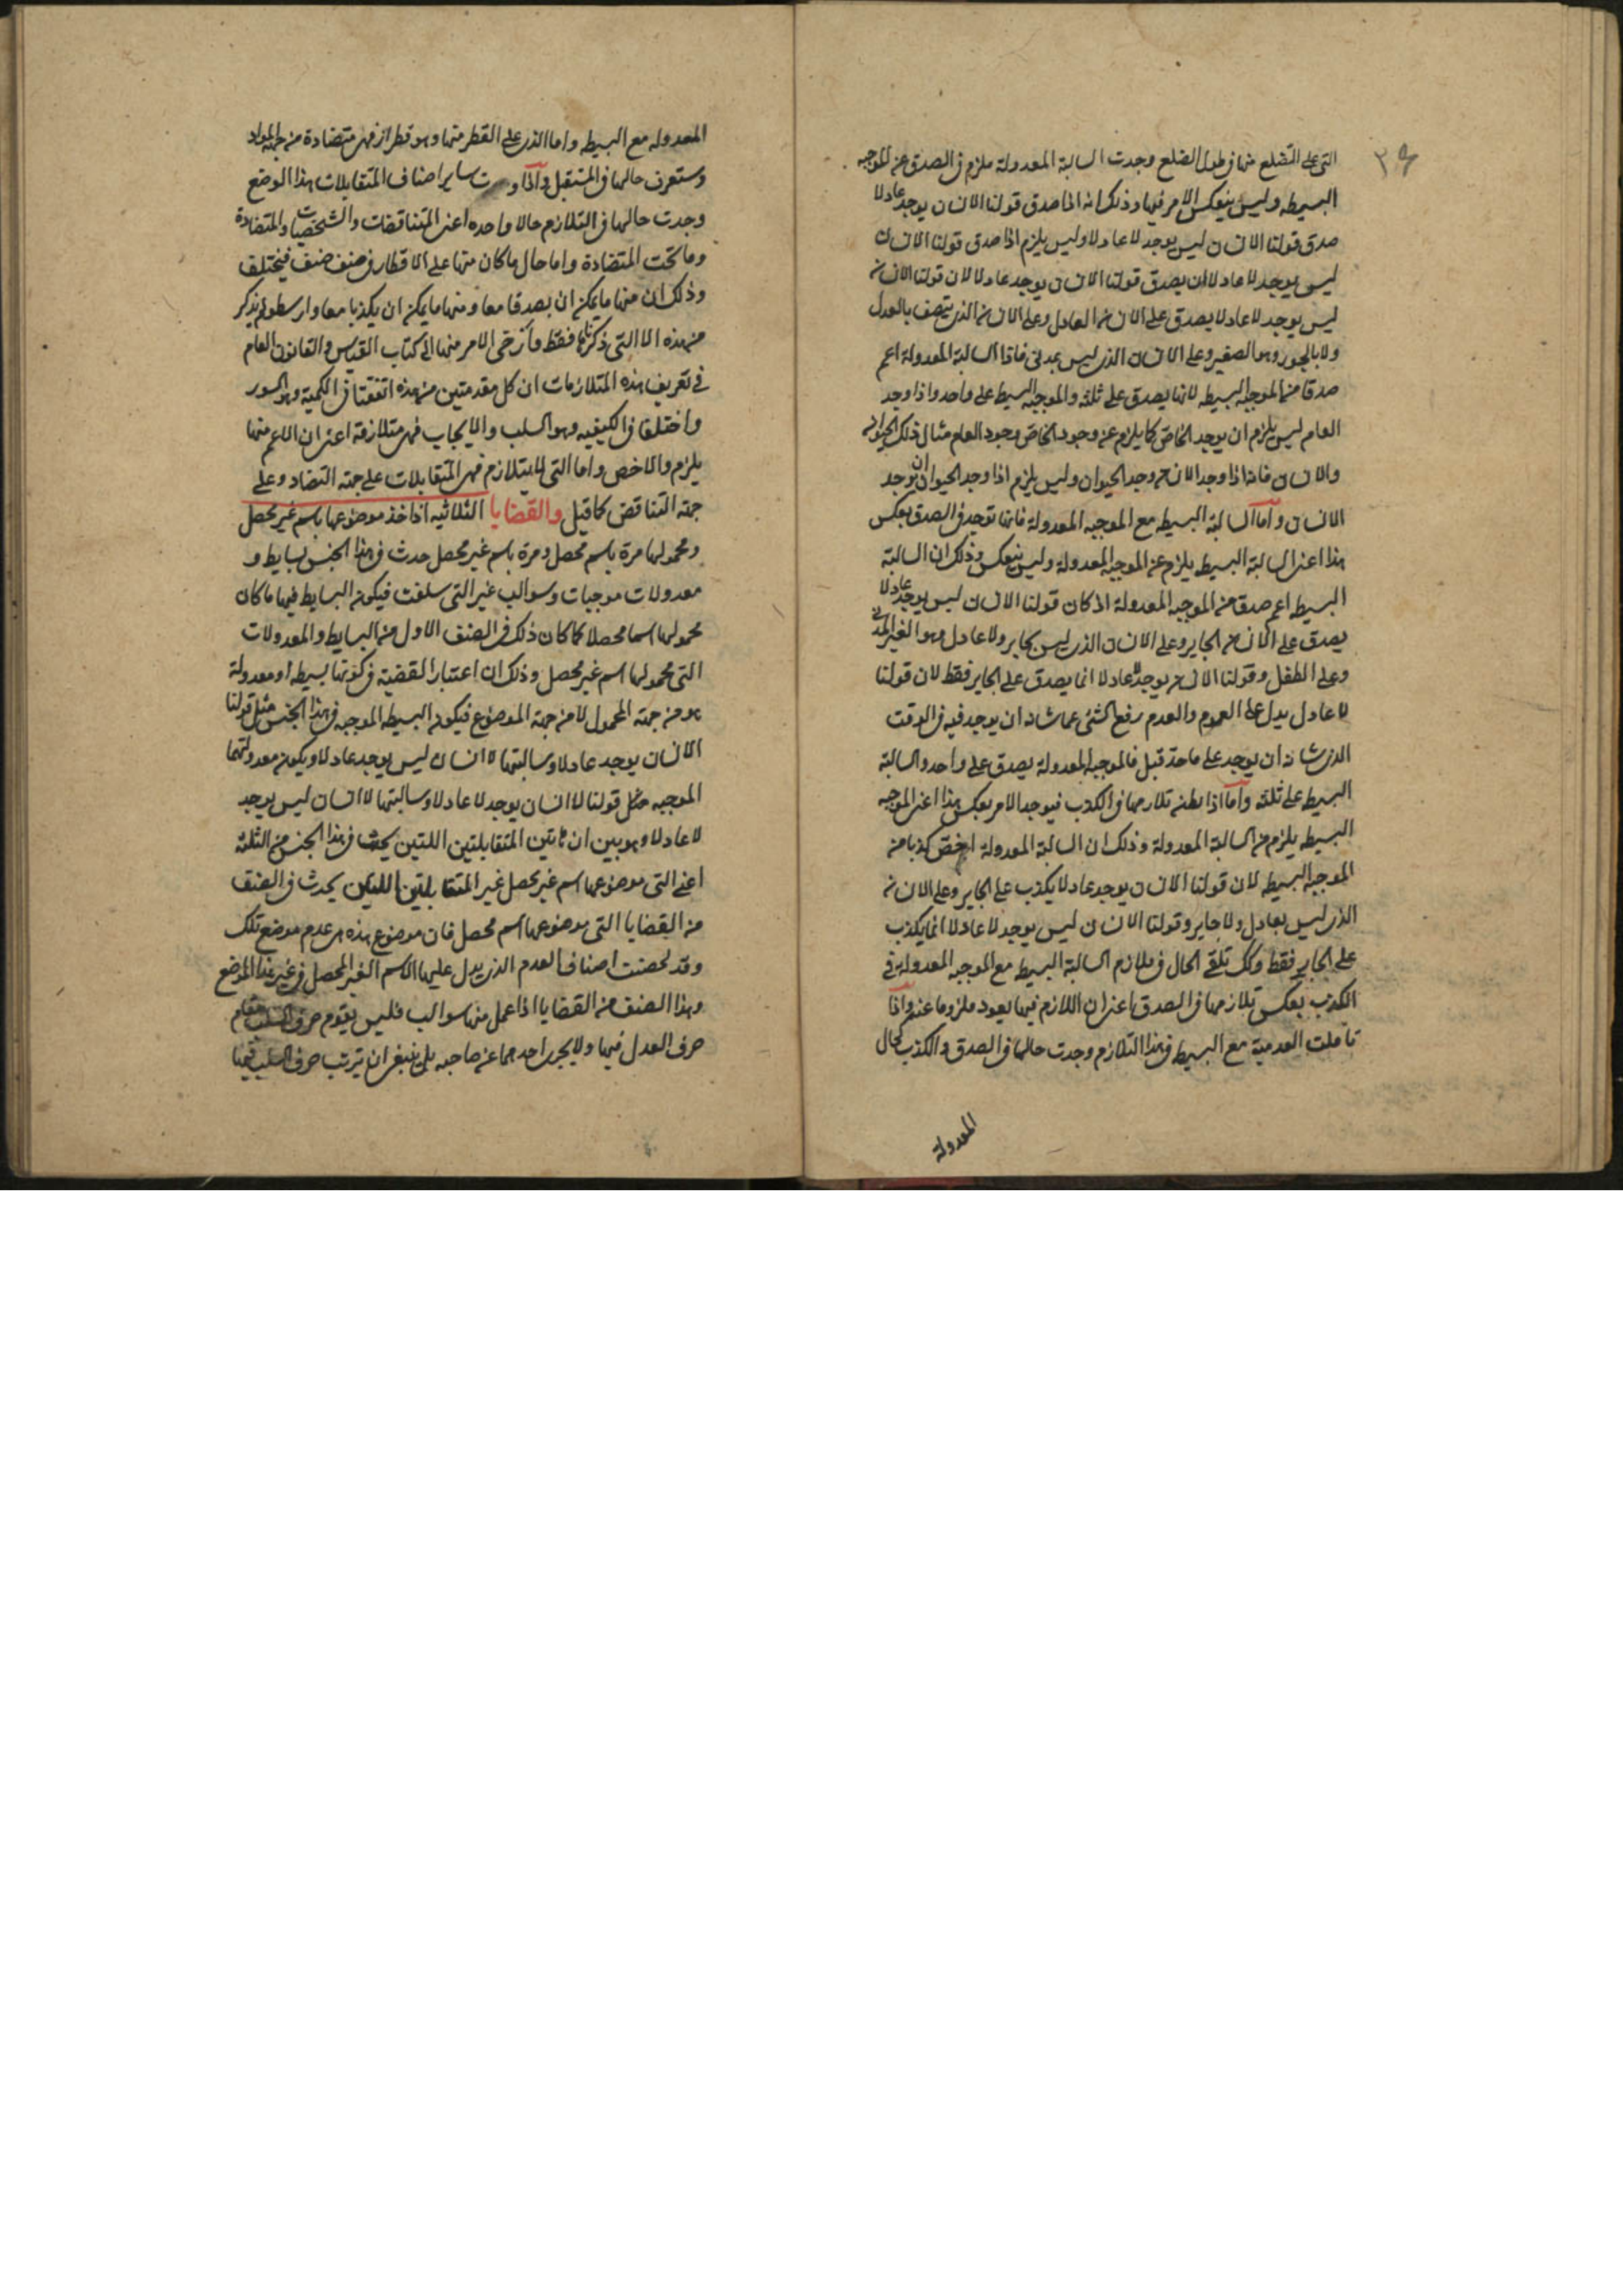 ٣٩
التى على الضلع منها فى طول الضلع وجدت السالبة المعدولة ملزم فى الصدق عن الموجبه
البسيطه وليس ينعكس الامر فيها وذلك انه اذا صدق قولنا الانسان يوجد عادلا
صدق قولنا الانسان ليس يوجد لا عادلا وليس يلزم اذا صدق قولنا الانسان
ليس يوجد لا عادلا ان يصدق قولنا الانسان يوجد عادلا لان قولنا الانسان
ليس يوجد لا عادلا يصدق على الانسان العادل وعلى الانسان الذى ليس يتصف بالعدل
ولا بالجور وهو الصغير وعلى الانسان الذى ليس بمدنى فاذا السالبة المعدولة اعم
صدقا من الموجبه البسيطه لانها يصدق على ثلثه والموجبه البسيط على واحد واذا وجد
العام ليس يلزم ان يوجد الخاص كما يلزم عن وجود الخاص وجود العام مثال ذلك الحيوان
والانسان فانه اذا وجد الانسان وجد الحيوان وليس يلزم اذا وجد الحيوان ان يوجد
الانسان واما السالبة البسيطه مع الموجبه المعدولة فانها توجد فى الصدق بعكس
هذا اعنى السالبة البسيط يلزم عن الموجبه المعدولة وليس ينعكس وذلك ان السالبة
البسيط اعم صدقا من الموجبه المعدولة اذ كان قولنا الانسان ليس يوجد عادلا
يصدق على الانسان الجاير وعلى الانسان الذى ليس بجاير ولا عادل وهو الغير المدنى
وعلى الطفل وقولنا الانسان يوجد لا عادلا انما يصدق على الجاير فقط لان قولنا
لا عادل يدل على العدم والعدم رفع الشئ عما شانه ان يوجد فيه فى الوقت
الذى شانه ان يوجد على ما حد قبل فالموجبه المعدولة يصدق على واحد والسالبة
البسيط على ثلثه واما اذا تلازمهما فى الكذب فيوجد الامر بعكس هذا اعنى الموجبه
البسيطه يلزم من السالبة المعدولة وذلك ان السالبة المعدولة اخص كذبا من
الموجبه البسيطه لان قولنا الانسان يوجد عادلا يكذب على الجاير وعلى الانسان
الذى ليس بعادل ولا جاير وقولنا الانسان ليس يوجد لا عادلا انما يكذب
على الجاير فقط وكك تلقى الحال فى تلازم السالبة البسيط مع الموجبه المعدولة فى
الكذب بعكس تلازمهما فى الصدق اعنى ان اللازم فيها يعود ملزوما عنه واذا
تاملت العدمية مع البسيط فى هذا التلازم وجدت حالها فى الصدق والكذب كحال
المعدولة
المعدوله مع البسيطه واما الذى على القطر منها وهو قطران فهى متضادة من جهه المواد
وستعرف حالها فى المستقبل واذا ساير اصناف المتقابلات هذا الوضع
وجدت حالها فى التلازم حالا واحده اعنى المتناقضات والشخصيات والمتضادة
وما تحت المتضادة واما حال ما كان منها على الاقطار فى صنف صنف فيختلف
وذلك ان منها ما يمكن ان يصدقا معا ومنها ما يمكن ان يكذبا معا وارسطو لم يذكر
من هذه الا التى ذكرناها فقط وارخى الامر منها الى كتاب القياس والقانون العام
فى تعريف هذه المتلازمات ان كل مقدمتين من هذه اتفقتا فى الكمية وهو السور
واختلفا فى الكيفيه وهو السلب والايجاب فهى متلازمة اعنى ان الاعم منها
يلزم والاخص واما التى لا يتلازم فهى المتقابلات على جهة التضاد وعلى
جهة التناقض كما قيل والقضايا الثلاثيه اذا اخذ موضوعها باسم غير محصل
ومحمولها مرة باسم محصل ومرة باسم غير محصل حدث فى هذا الجنس بسايط و
معدولات موجبات وسوالب غير التى سلفت فيكون البسايط فيها ما كان
محمولها اسما محصلا كما كان ذلك فى الصنف الاول من البسايط والمعدولات
التى محمولها اسم غير محصل وذلك ان اعتبار القضية فى كونها بسيطه او معدولة
هو من جهة المحمول لا من جهة الموضوع فيكون البسيط الموجبه فى هذا الجنس مثل قولنا
الانسان يوجد عادلا وسالبتها لا انسان ليس يوجد عادلا ويكون معدولتها
الموجبه مثل قولنا لا انسان يوجد لا عادلا وسالبتها لا انسان ليس يوجد
لا عادلا وهو بين ان هاتين المتقابلتين اللتين يحدث فى هذا الجنس من الثلثه
اعنى التى موضوعها اسم غير محصل غير المتقابلتين اللتين يحدث فى الصنف
من القضايا التى موضوعها اسم محصل فان موضوع هذه هى عدم موضع تلك
وقد لخصنا اصناف العدم الذى يدل عليها الاسم الغير المحصل فى غير هذا الموضع
وهذا الصنف من القضايا اذا عمل منها سوالب فليس يقوم حرف السلب مقام
حرف العدل فيها ولا يجرى احدهما عن صاحبه بل ينبغى ان ترتب حرف السلب فيها